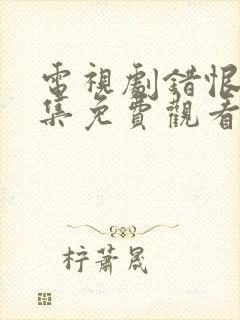 電視劇錯恨
集免費觀看
柠蕭晟